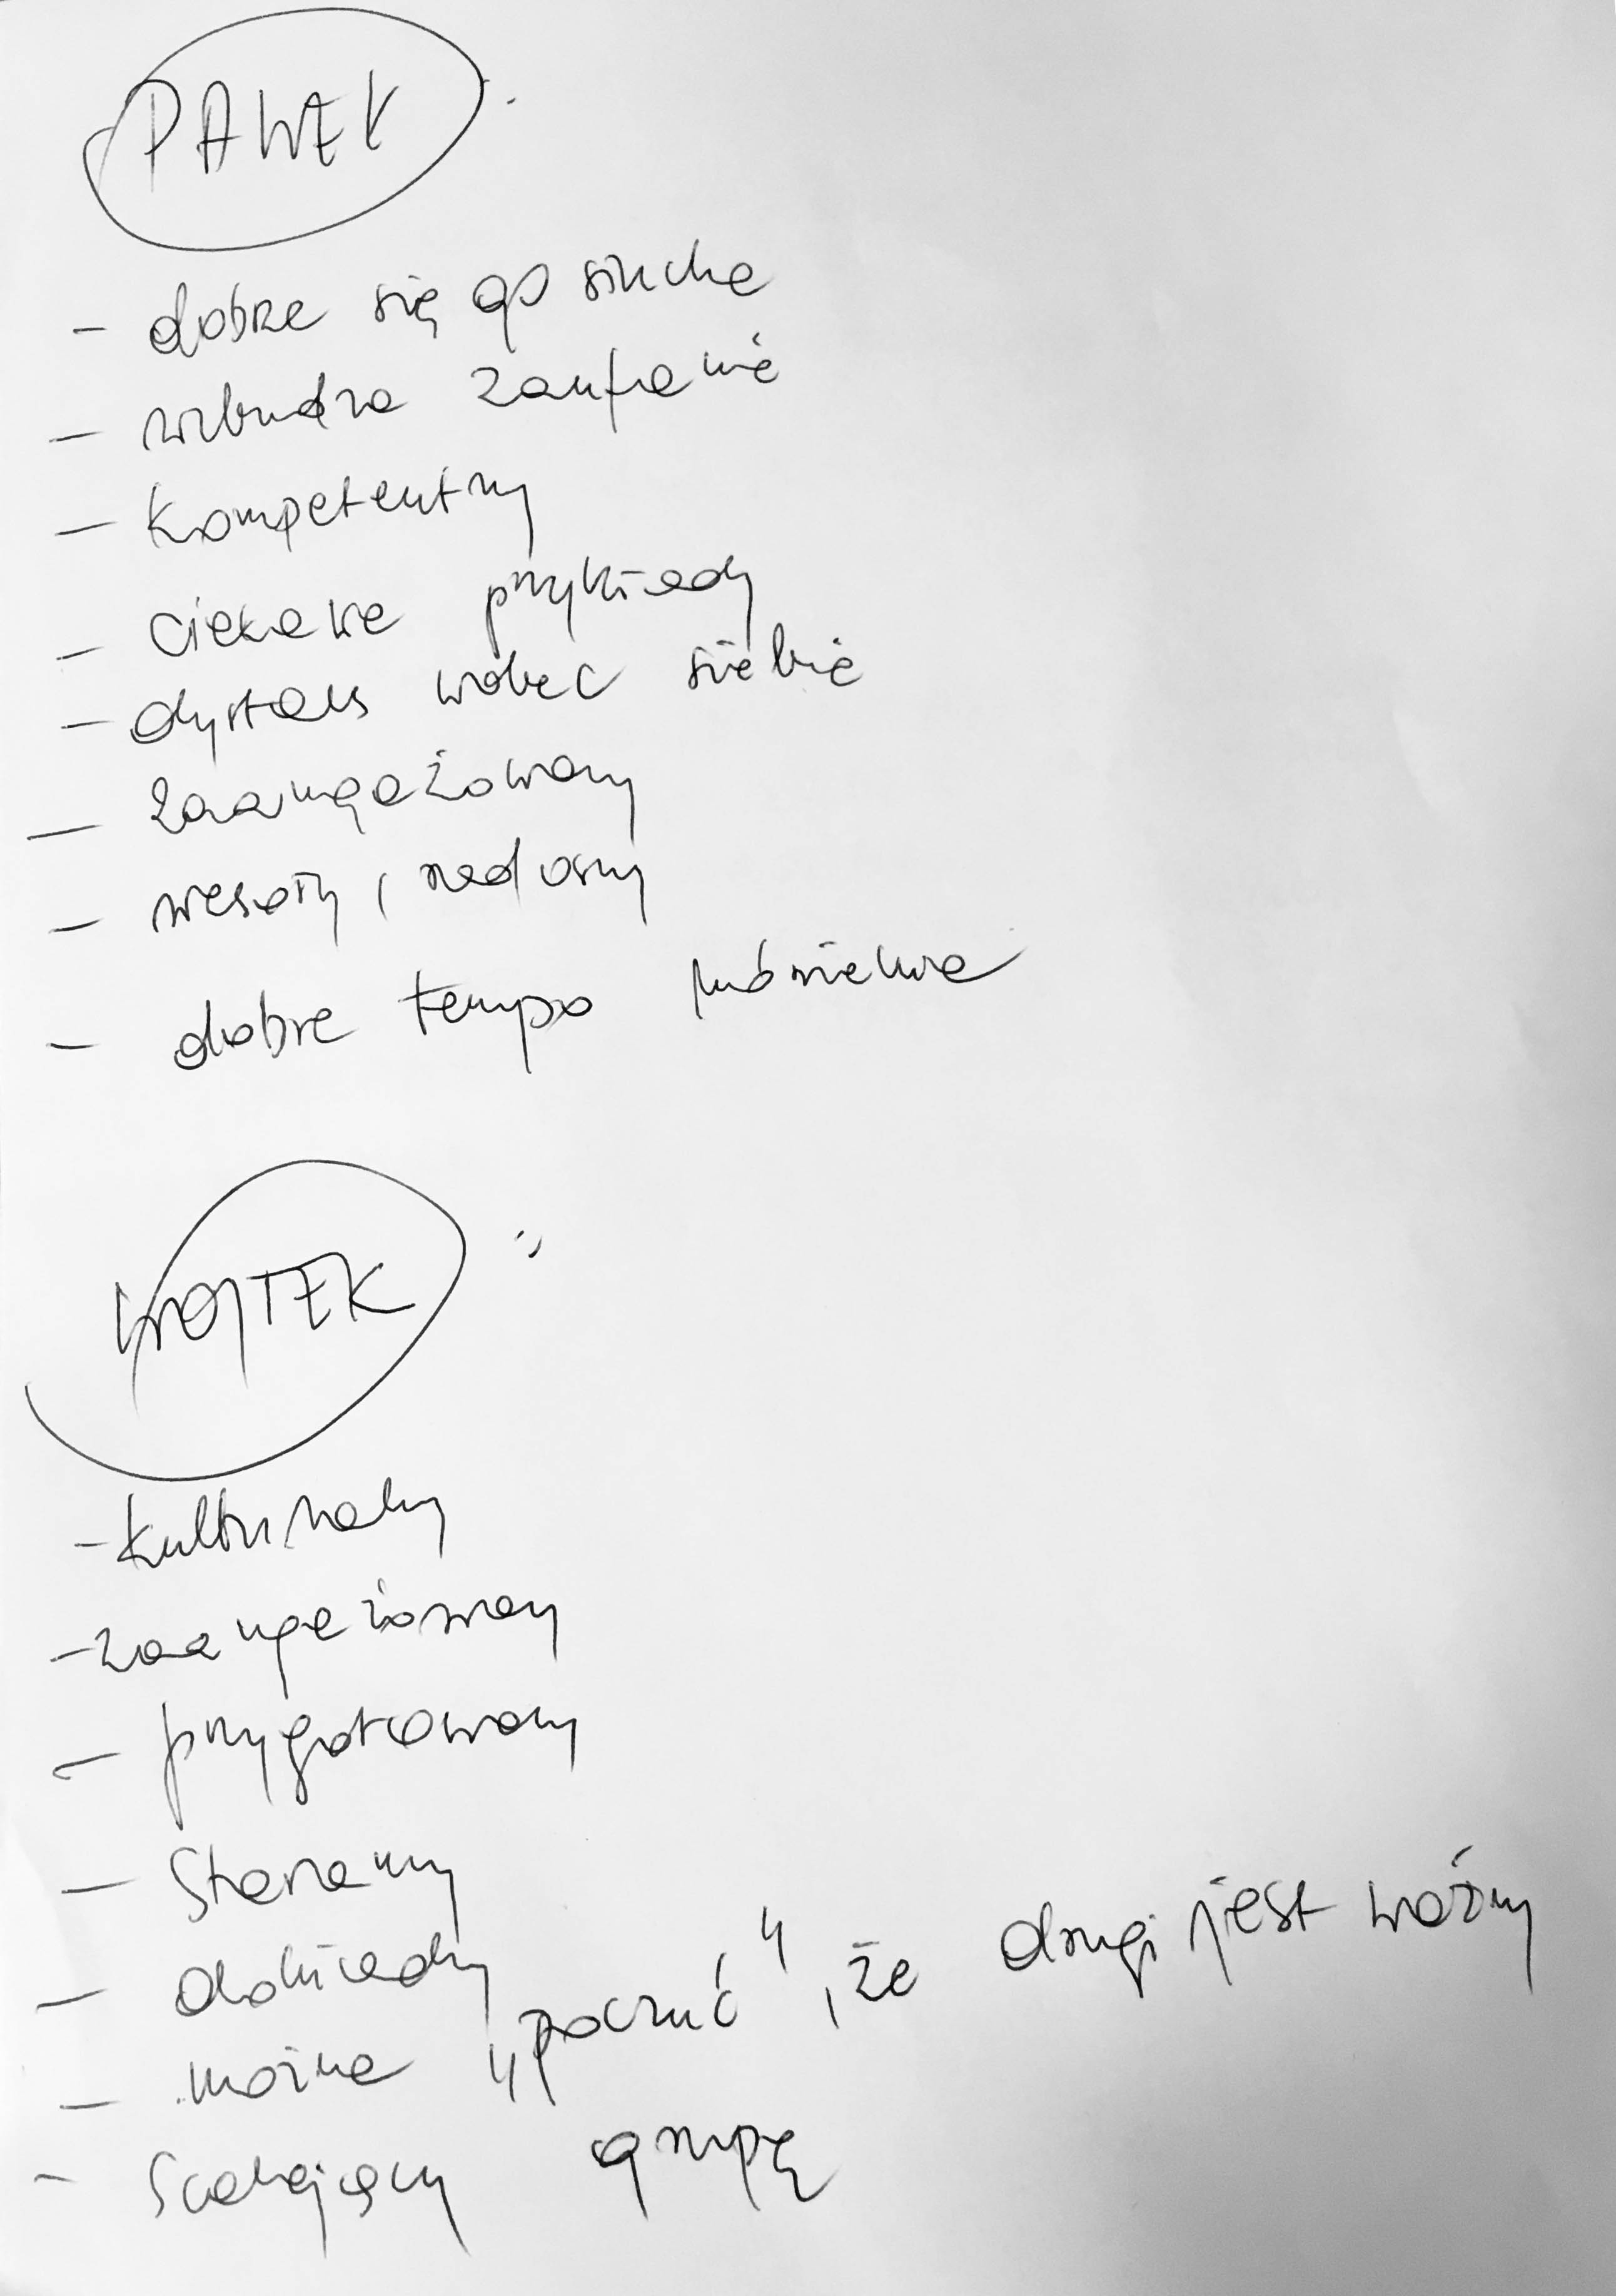 PAWEŁ
- dobrze się go słucha
- wzbudza zaufanie
- kompetentny
- ciekawe przykłady
- dystans wobec siebie
- zaangażowany
- wesoły, radosny
- dobre tempo mówienia
WOJTEK:
- kulturalny
- zaangażowany
- przygotowany
- Staranny
- dokładny
- można "poczuć", że drugi jest ważny
- Scalający grupę